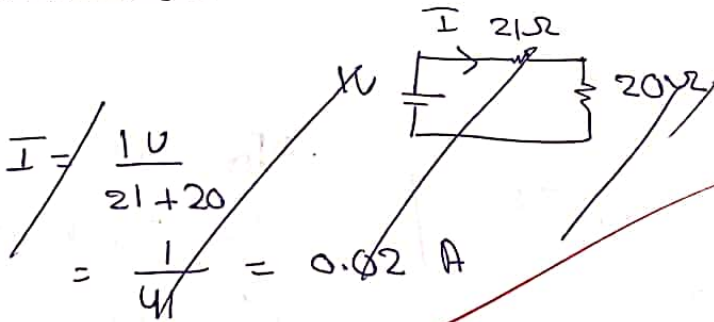 I 21Ω
1V 20Ω
I = 1V / 21+20
= 1/41 = 0.02 A